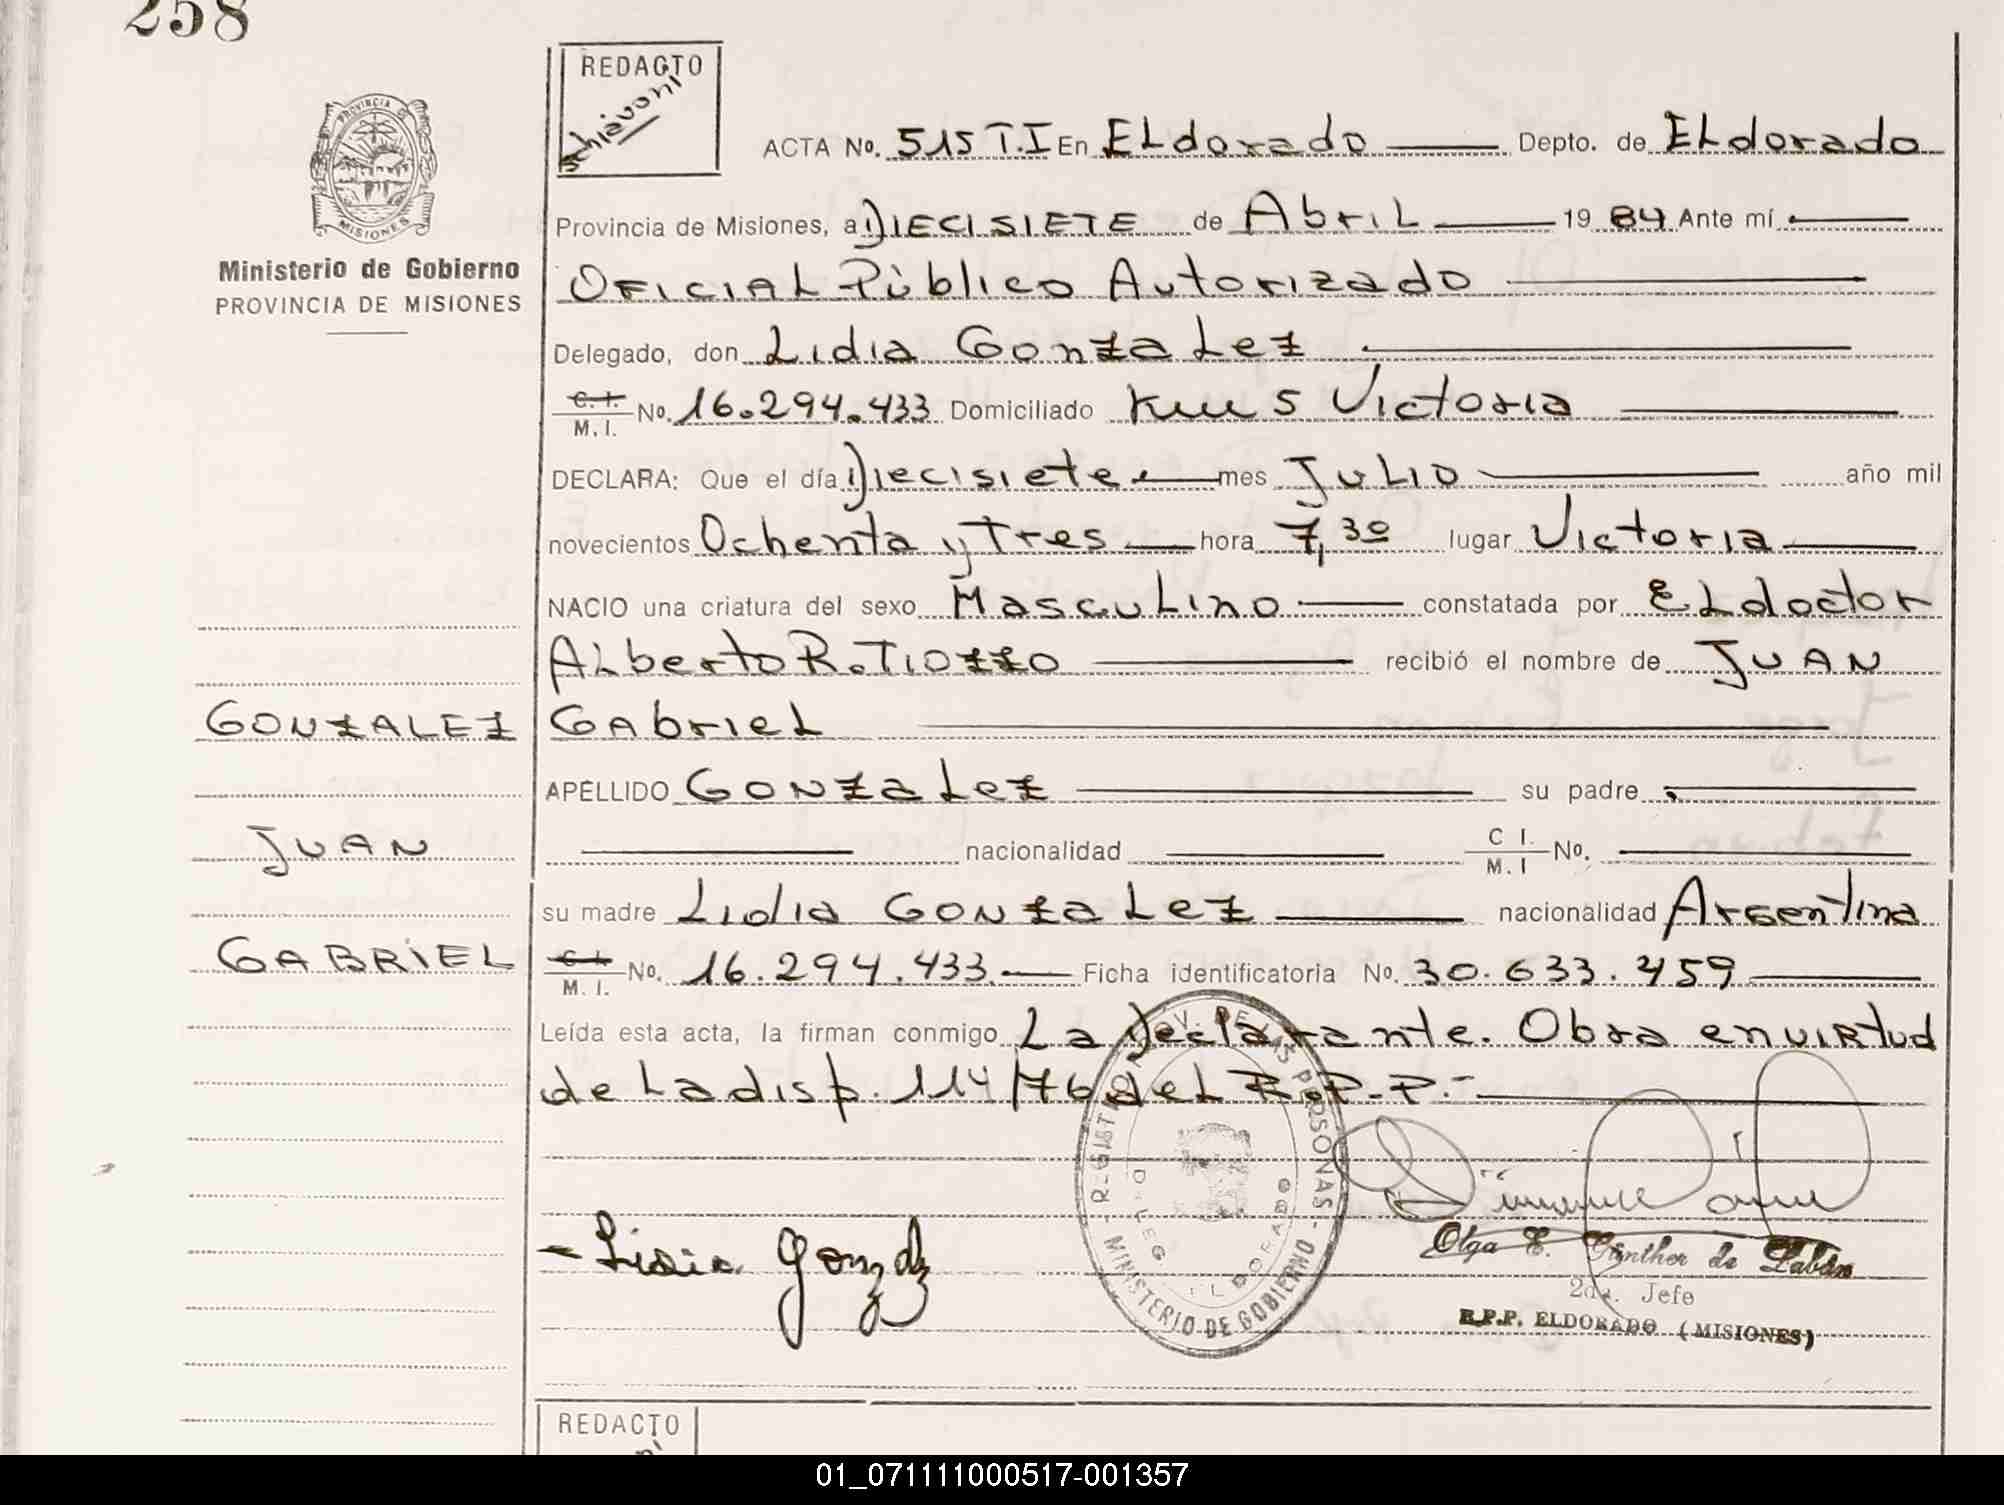 258
REDACTO
Schiavoni
PROVINCIA DE
MISIONES
Ministerio de Gobierno
PROVINCIA DE MISIONES
ACTA No. 515 T.I En ELdorado Depto. de ELdorado
Provincia de Misiones, a DIECISIETE de AbriL 19 84 Ante mí
OFICIAL Público Autorizado
Delegado, don Lidia GonzaLez
C.I. M.I. No. 16.294.433 Domiciliado Km 5 Victoria
DECLARA: Que el día Diecisiete mes JULIO año mil
novecientos Ochenta y Tres hora 7,30 lugar Victoria
NACIO una criatura del sexo MascuLino constatada por EL doctor
ALberto R. Tiozzo recibió el nombre de JUAN
GONZALEZ GAbrieL
APELLIDO GONZaLez su padre
JUAN nacionalidad C I. M. I No.
su madre Lidia GONzaLez nacionalidad Argentina
GABRIEL C.I. M. I. No. 16.294.433. Ficha identificatoria No. 30.633.459
Leída esta acta, la firman conmigo La Declarante. Obra en virtud
de La disp. 114/76 deL R.P.P.-
REGISTRO PROV. DE LAS PERSONAS - MINISTERIO DE GOBIERNO -
DELEG. ELDORADO
- Lidia Gonzalez
Olga E. Günther de Labán
2da. Jefe
R.P.P. ELDORADO (MISIONES)
REDACTO
01_071111000517-001357